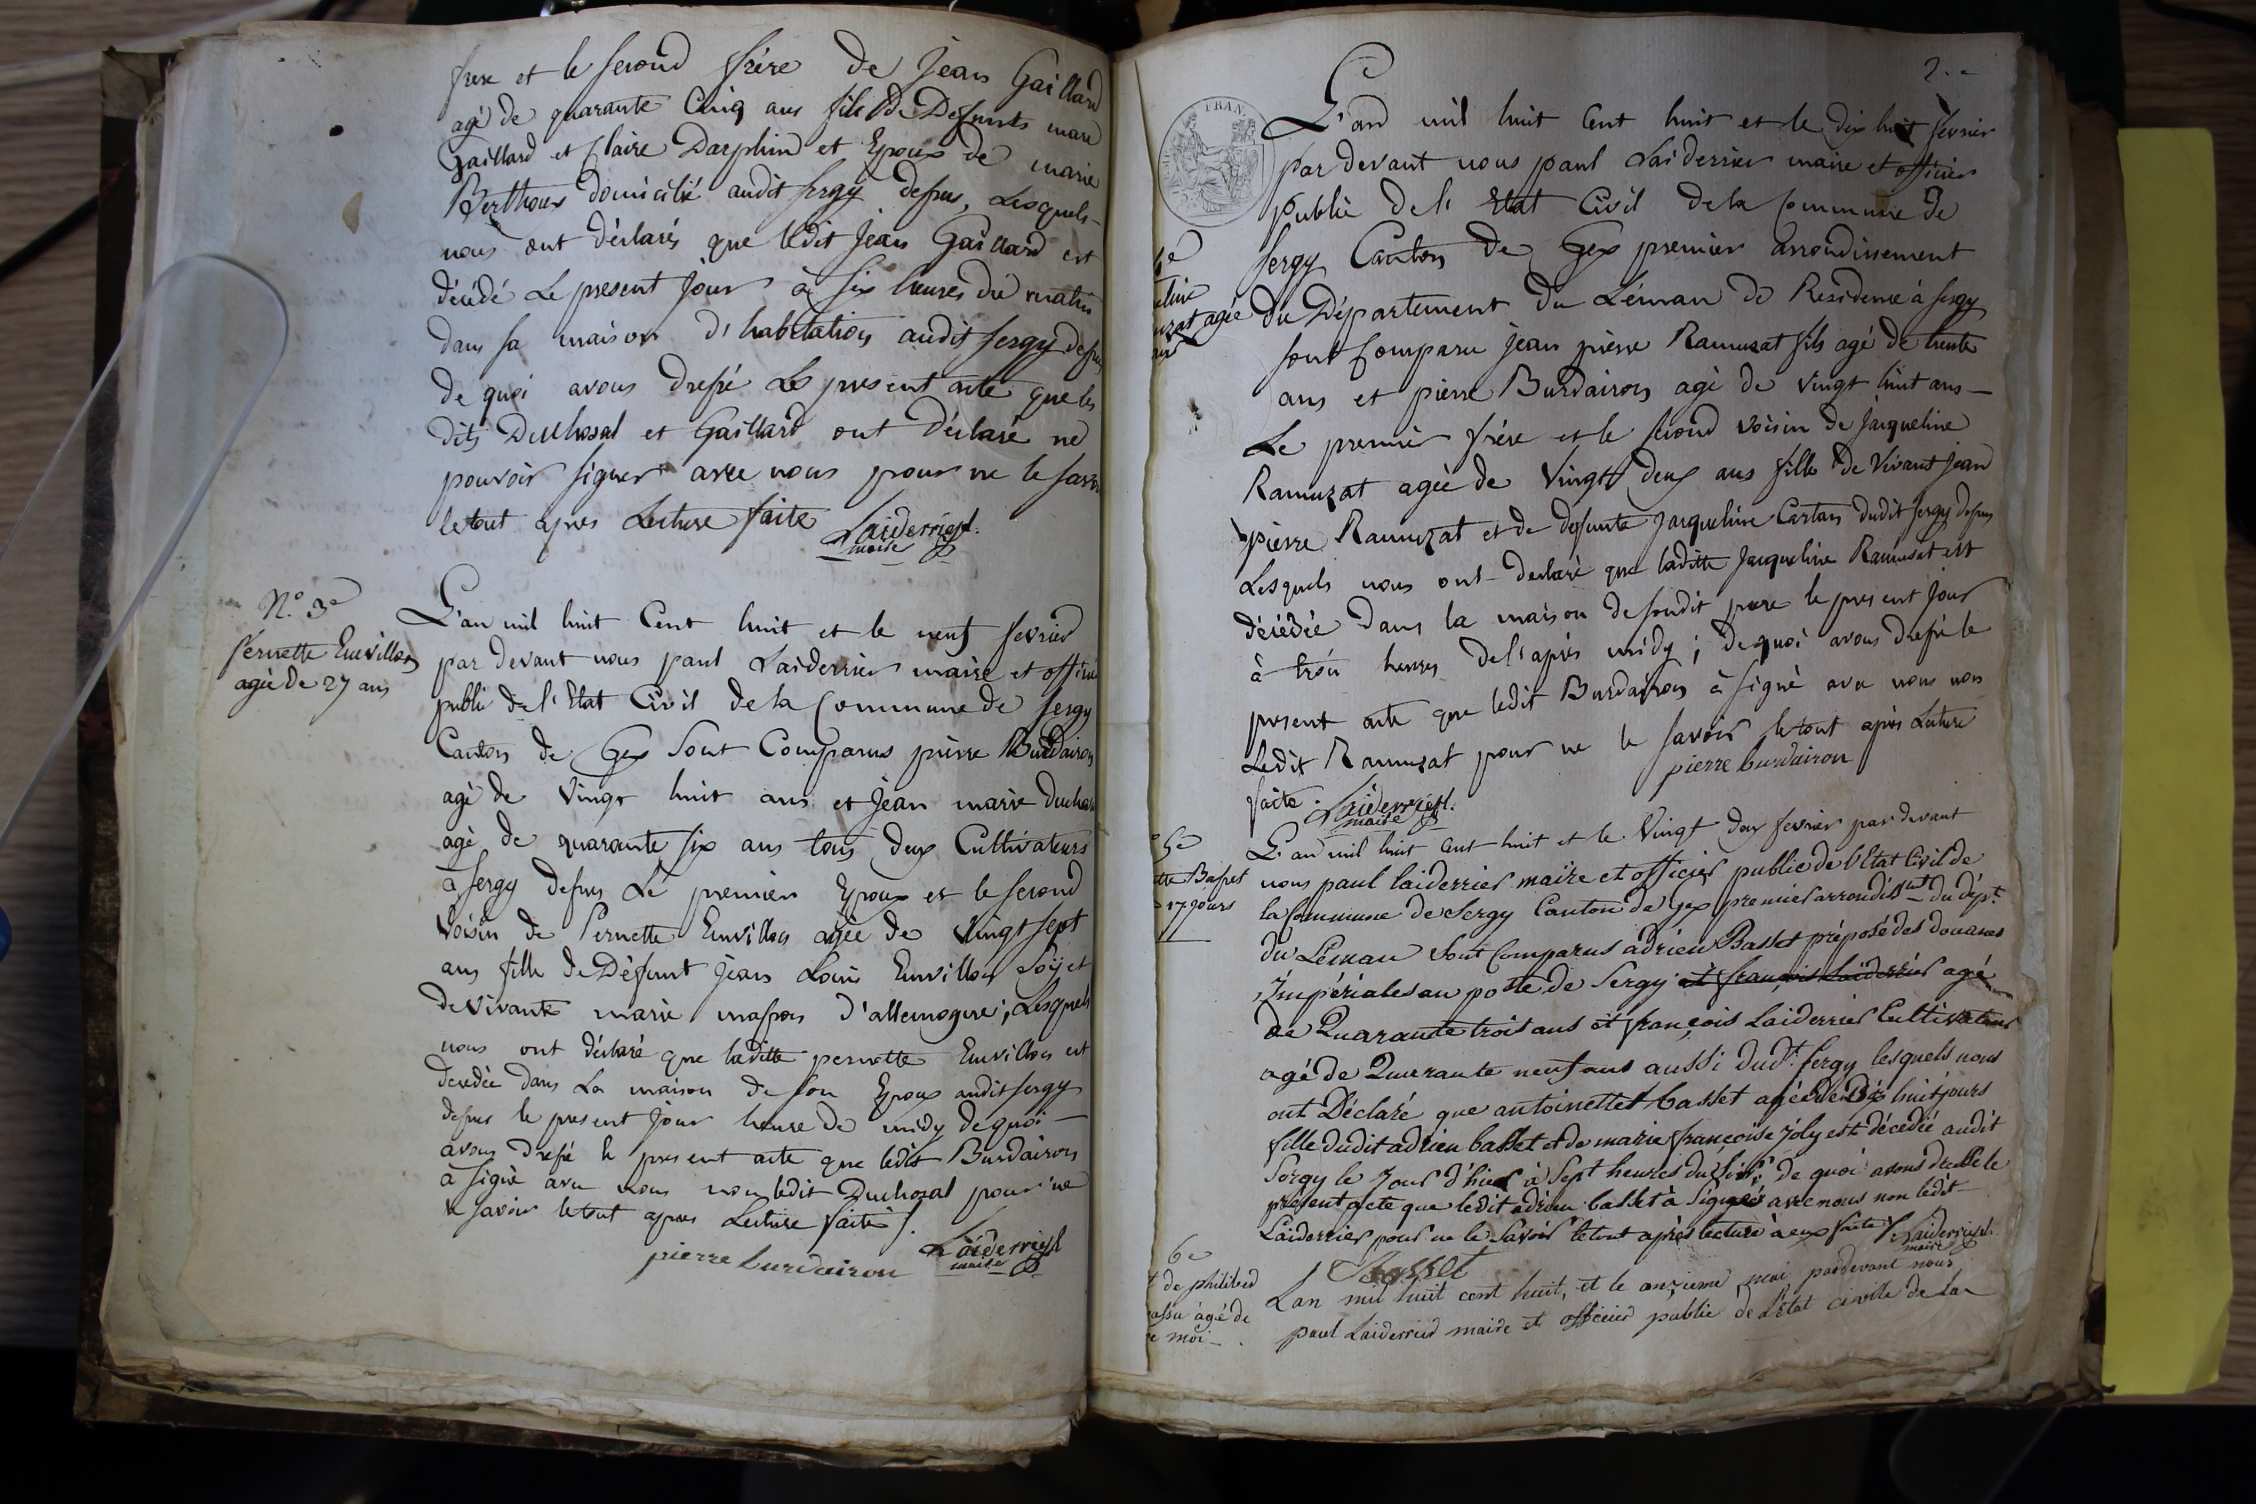 frere et le second frère de Jean Gaillard
agé de quarante Cinq ans fils De Defunts marie
Gaillard et Claire Darphin et Epoux de marie
Berthoux domicilié audit sergy dessus, Lesquels
nous ont déclarés que ledit Jean Gaillard est
décédé Le present Jour à six heures du matin
dans sa maison d'habitation audit sergy dessus
de quoi avons dressé Le present acte que les
dits Duchosal et Gaillard ont déclaré ne
pouvoir signer avec nous pour ne le savoir
le tout apres Lecture faite Laiderrier
maire
N.° 3e
Pernette Emvillon
agée De 27 ans
L'an mil huit Cent huit et le neuf fevrier
par devant nous paul Laiderrier maire et officier
public de l'Etat Civil de la Commune de sergy
Canton de Gex sont Comparus pierre Burdairon
agé de vingt huit ans et Jean marie Duchosal
agé de quarante six ans tous deux Cultivateurs
à sergy dessus Le premier Epoux et le second
voisin de Pernette Emvillon agée de vingt sept
ans fille de Défunt Jean Louis Emvillon et
de vivante marie masson d'allemogne ; Lesquels
nous ont déclaré que laditte pernette Emvillon est
decedée dans La maison de son Epoux audit sergy
dessus le present Jour heure de midy de quoi
avons dressé le present acte que ledit Burdairon
à signé avec nous non ledit Duchosal pour ne
le savoir le tout apres Lecture faite
pierre burdairon Laiderrier
maire
2.e
FRAN
L'an mil huit Cent huit et le dix huit fevrier
par devant nous paul Laiderrier maire et officier
public de l'Etat Civil de la Commune de
sergy Canton de Gex premier arrondissement
du Département du Léman de Residence à sergy
sont Comparu Jean pierre Ramuzat fils agé de trente
ans et pierre Burdairon agé de vingt huit ans
Le premier frère et le second voisin de Jacqueline
Ramuzat agée de vingt deux ans fille de vivant Jean
pierre Ramuzat et de defunte Jacqueline Cartan dudit sergy dessus
Lesquels nous ont declaré que laditte Jacqueline Ramusat est
décédée dans la maison de sondit pere le present Jour
à trois heures de l'après midy ; de quoi avons dressé le
present acte que ledit Burdairon à signé avec nous non
Ledit Ramuzat pour ne le savoir le tout après Lecture
pierre burdairon
faite. Laiderrier
maire
5e
Basset
17 jours
L'an mil huit cent huit et le vingt deux fevrier par devant
nous paul laiderrier maire et officier public de l'Etat Civil de
la Commune de Sergy Canton de Gex premier arrondissmt du dépt.
du Léman sont Comparus adrien Basset préposé des douanes
Impériales au poste de Sergy et françois Laiderrier agé
de Quarante trois ans et françois Laiderrier Cultivateur
agé de Quarante neuf ans aussi dudt. sergy lesquels nous
ont Déclaré que antoinette basset agée de dix huit jours
fille dudit adrien basset et de marie françoise Joly est décédée audit
Sergy le Jour d'hier à sept heures du soir, de quoi avons dressé le
présent acte que ledit adrien basset à signé avec nous non ledit
Laiderrier pour ne le savoir le tout après lecture à eux faite Laiderrier
maire
Basset
6e
de philiberd
agé de
moi
L'an mil huit cent huit, et le onzieme mai pardevant nous
paul Laiderrier maire et officier public de l'état civille de la